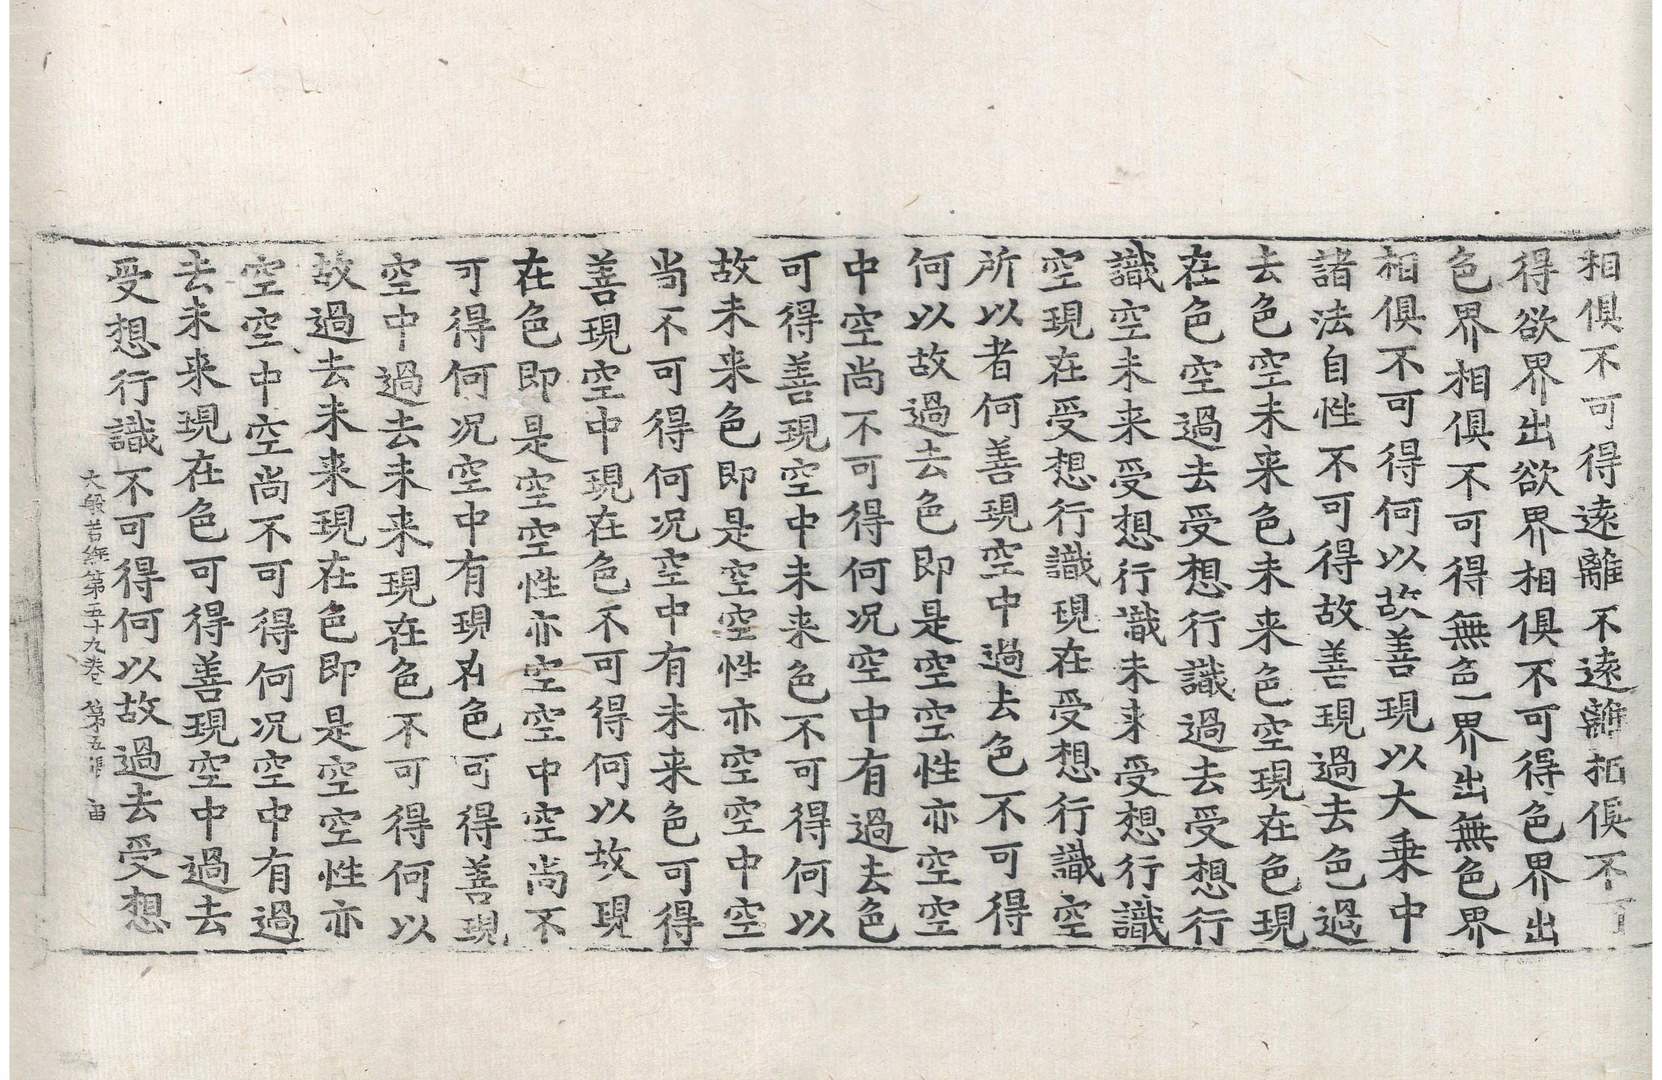 相俱不可得遠離不遠離相俱不可
得欲界出欲界相俱不可得色界出
色界相俱不可得無色界出無色界
相俱不可得何以故善現以大乗中
諸法自性不可得故善現過去色過
去色空未来色未来色空現在色現
在色空過去受想行識過去受想行
識空未来受想行識未来受想行識
空現在受想行識現在受想行識空
所以者何善現空中過去色不可得
何以故過去色即是空空性亦空空
中空尚不可得何况空中有過去色
可得善現空中未来色不可得何以
故未来色即是空空性亦空空中空
尚不可得何况空中有未来色可得
善現空中現在色不可得何以故現
在色即是空空性亦空空中空尚不
可得何况空中有現在色可得善現
空中過去未来現在色不可得何以
故過去未来現在色即是空空性亦
空空中空尚不可得何况空中有過
去未来現在色可得善現空中過去
受想行識不可得何以故過去受想
大般若經第五十九卷 第五張 宙